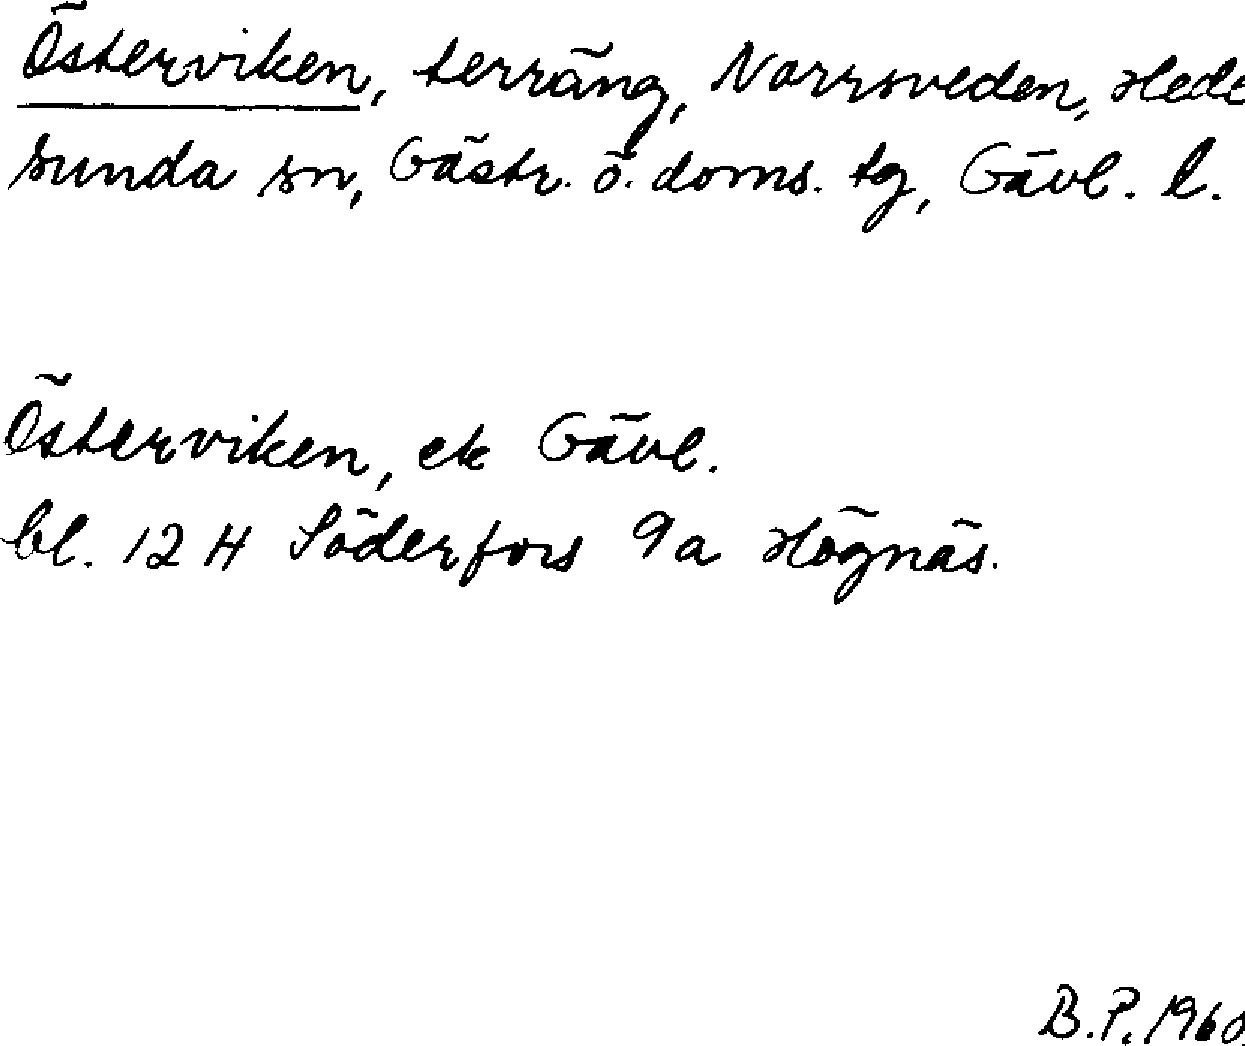 Österviken, terräng, Norrsveden, Hede
sunda sn, Gästr. ö. doms. tg, Gävl. l.
Österviken, ek Gävl.
bl. 12 H Söderfors 9a Högnäs.
B.P. 1960.